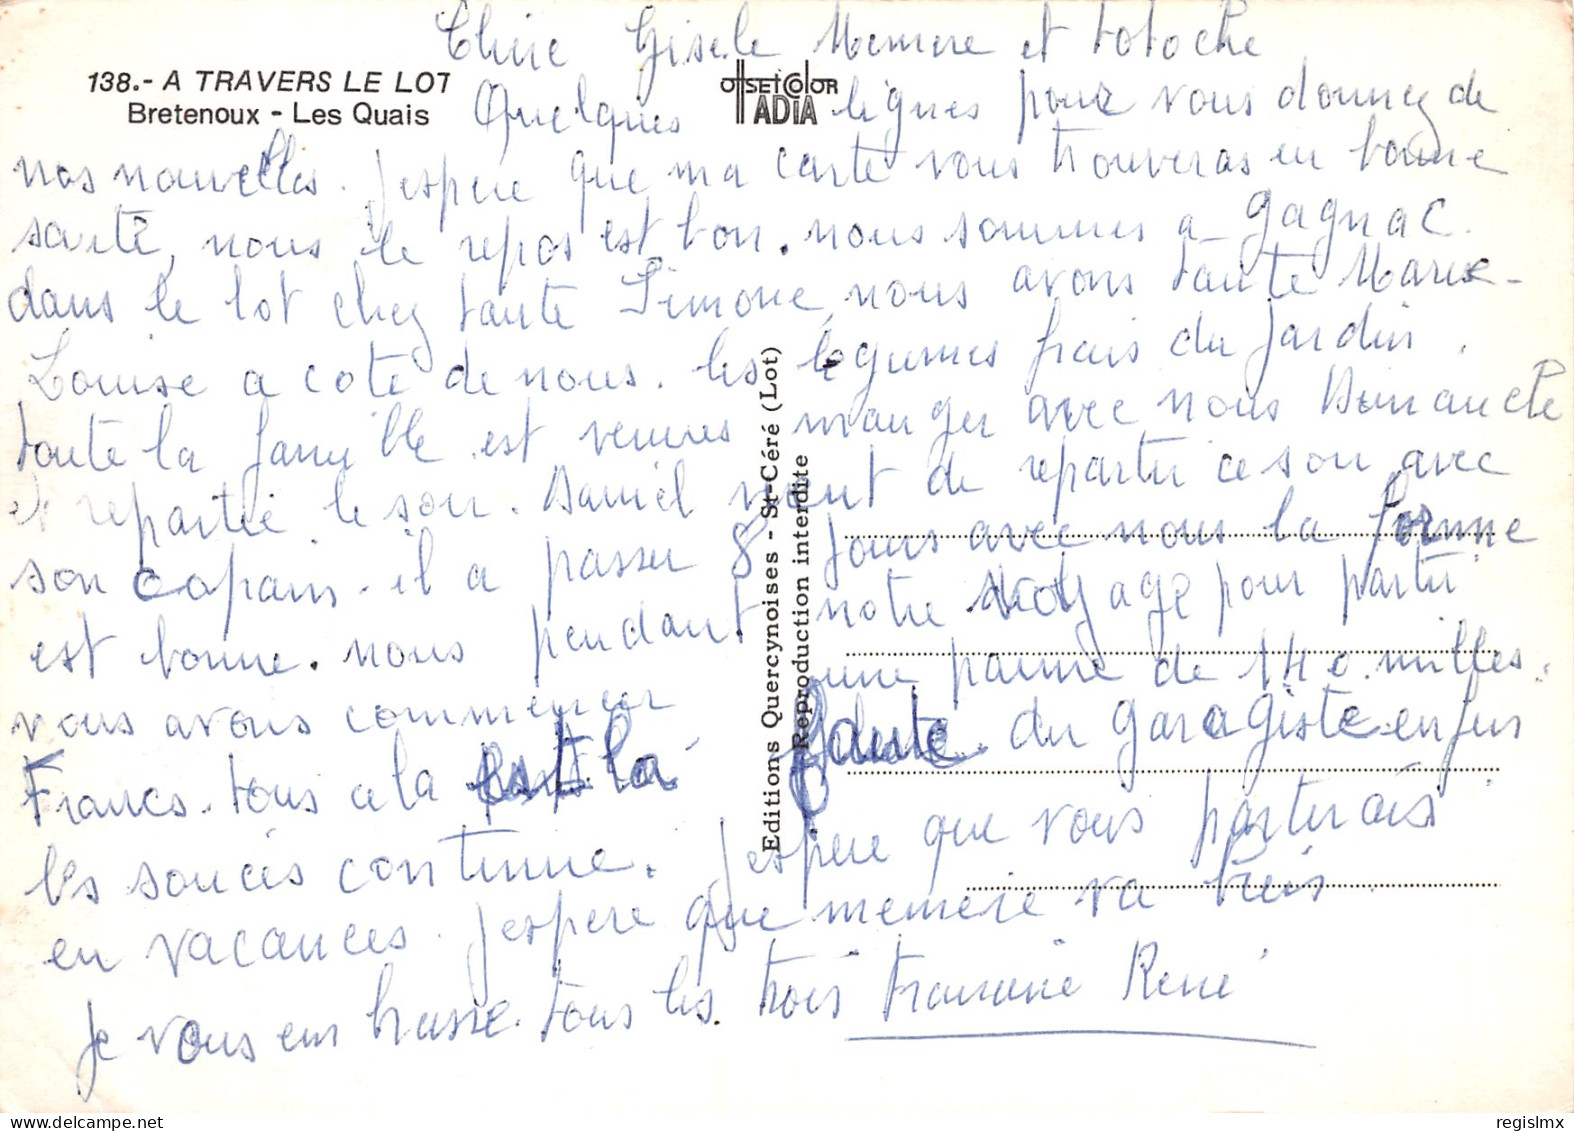 Chère Gisèle Memere et totoche
138.- A TRAVERS LE LOT
Bretenoux - Les Quais
OffSEt COlOR
IADIA
Quelques lignes pour vous donnez de
nos nouvelles. J'espere que ma carte vous trouveras en bonne
santé, nous le repos est bon. nous sommes a Gagnac.
dans le lot chez tante Simone, nous avons tante Marie-
Louise a coté de nous. les légumes frais du jardin.
toute la famille est venues manger avec nous Dimanche
et repartie le soir. Daniel vient de repartir ce soir avec
son copain. il a passer 8 jours avec nous la forme
est bonne. nous pendant notre voyage pour partir
nous avons commencer une panne de 140 milles.
Francs. tous a la faute du garagiste. enfin
les soucis continue. J'espere que vous partirais
en vacances. J'espere que memere va bien.
Je vous embrasse. tous les trois Francine René
Editions Quercynoises - St-Céré (Lot)
Reproduction interdite
regislmx